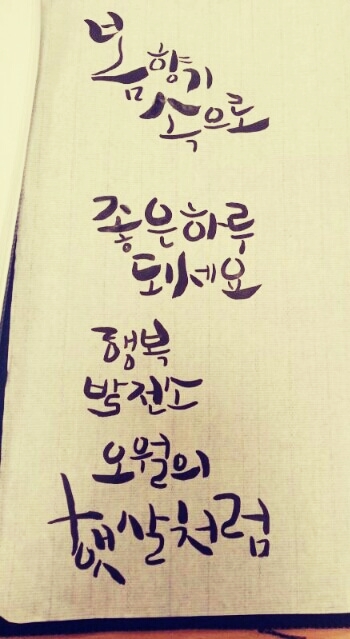 봄향기
속으로
좋은하루
돼세요
행복
발전소
오월의
햇살처럼